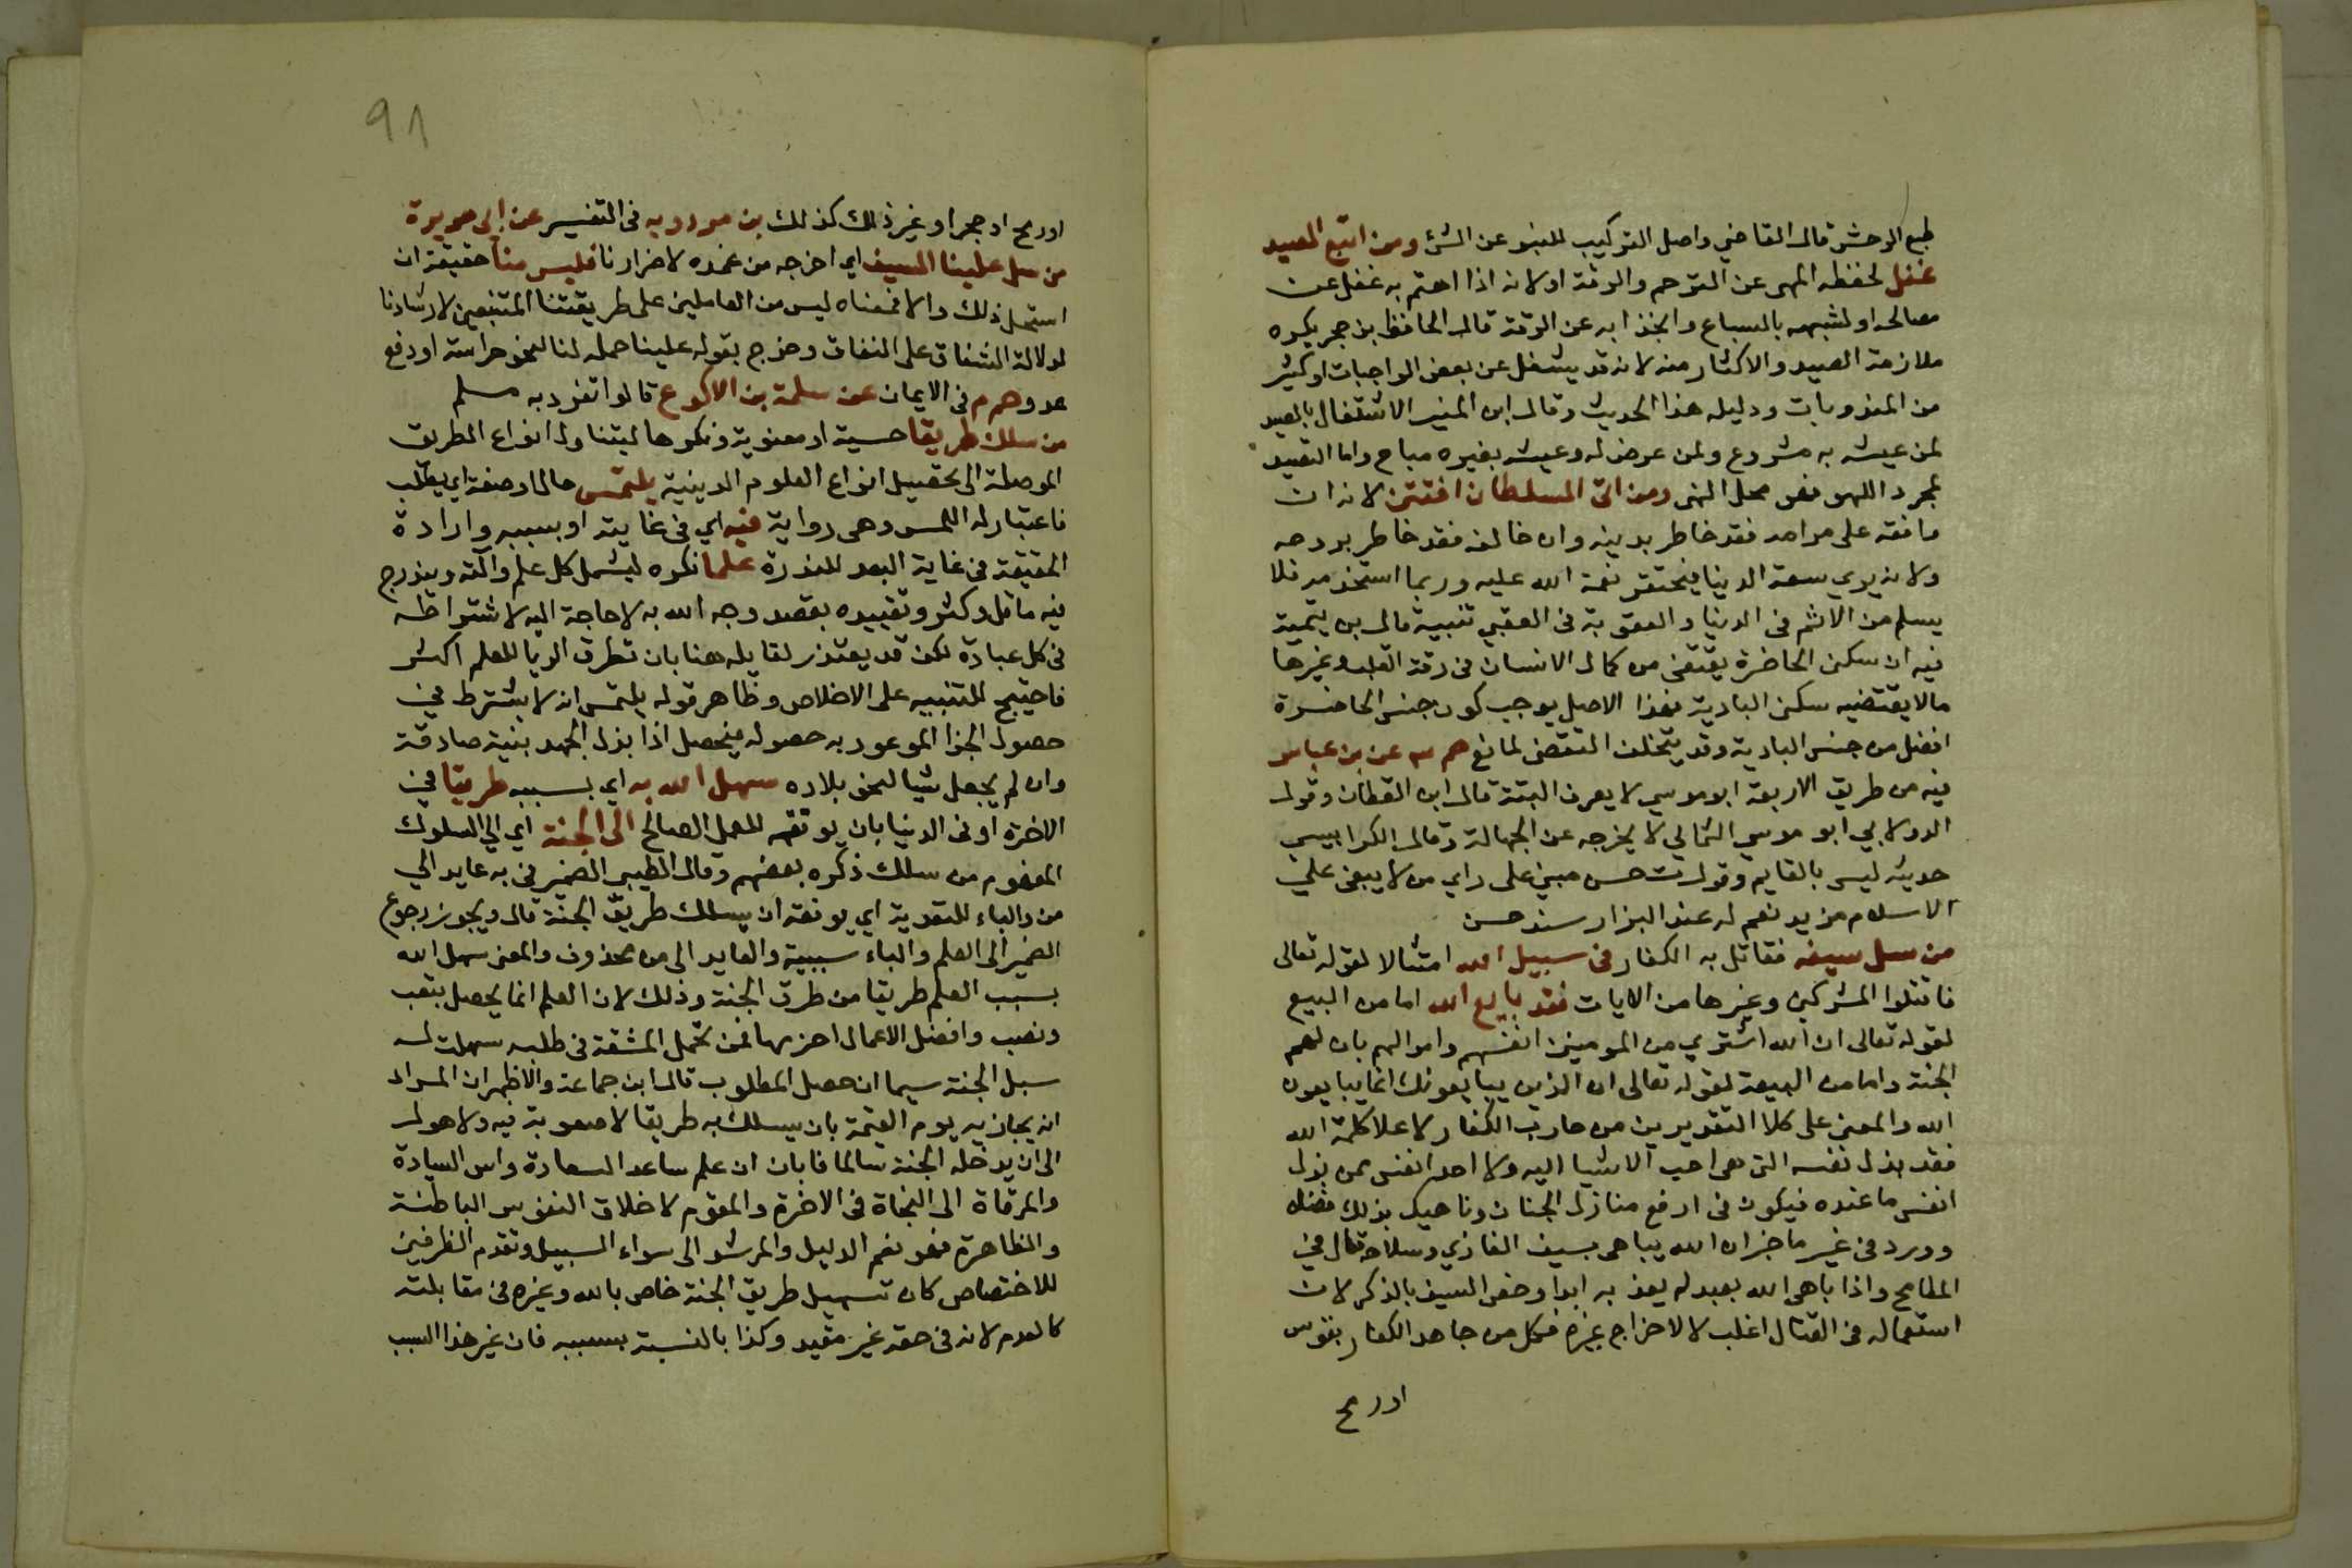 طبع الوحش قال القاضي واصل التركيب للنبو عن الشئ ومن اتبع الصيد
غفل لحفظه المهى عن الترحم والرقة اولانه اذا اهتم به غفل عن
مصالحه او لشبهه بالسباع وانجذابه عن الرقة قال الحافظ بن حجر يكره
ملازمة الصيد والاكثار منه لانه قد يشغل عن بعض الواجبات او كثير
من المندوبات ودليله هذا الحديث وقال ابن المنير الاشتغال بالصيد
لمن عيشه به مشروع ولمن عرض له وعيشه بغيره مباح واما التصيد
لمجرد اللهو فهو محل النهى ومن اتى السلطان افتتن لانه ان
وافقه على مرامه فقد خاطر بدينه وان خالفه فقد خاطر بروحه
ولانه يرى سعة الدنيا فيحتقر نعمة الله عليه وربما استخدمه فلا
يسلم من الاثم في الدنيا والعقوبة في العقبي تنبيه قال بن تيمية
فيه ان سكنى الحاضرة يقتضى من كمال الانسان في رقة القلب وغيرها
مالا يقتضيه سكنى البادية فهذا الاصل يوجب كون جنس الحاضرة
افضل من جنس البادية وقد يتخلف المقتضى لمانع حم عن بن عباس
فيه من طريق الاربعة ابو موسى لا يعرف البتة قال ابن القطان وقول
الدولابي ابو موسي اليماني لا يخرجه عن الجهالة وقال الكرابيسي
حديثه ليس بالقايم وقول ت حسن مبني على راي من لا يبغى علي
الاسلام مزيد نعم له عند البزار سند حسن
من سل سيفه فقاتل به الكفار في سبيل الله امتثالا لقوله تعالى
فاقتلوا المشركين وغيرها من الايات فقد بايع الله اما من البيع
لقوله تعالى ان الله اشترى من المومنين انفسهم واموالهم بان لهم
الجنة واما من البيعة لقوله تعالى ان الذين يبايعونك انما يبايعون
الله والمعنى على كلا التقديرين من حارب الكفار لاعلا كلمة الله
فقد بذل نفسه التي هي احب الاشيا اليه ولا احد انفس ممن بذل
انفس ما عنده فيكون في ارفع منازل الجنان وناهيك بذلك فضلا
وورد في غير ما خبر ان الله يباهى بسيف الغازي وسلاحه قال في
المطامح واذا باهى الله بعبد لم يعذبه ابدا وخص السيف بالذكر لان
استعماله في القتال اغلب لا لاخراج غيره فكل من جاهد الكفار بقوس
او رمح
91
او رمح او حجر او غير ذلك كذلك بن مردويه في التفسير عن ابي هريرة
من سل علينا السيف اي اخرجه من غمده لاضرارنا فليس منا حقيقة ان
استحل ذلك والا فمعناه ليس من العاملين على طريقتنا المتبعين لارشادنا
لدلالة الشقاق على النفاق وخرج بقوله علينا حمله لنا لنحو حراسة او دفع
عدو حم م في الايمان عن سلمة بن الاكوع قالوا تفرد به مسلم
من سلك طريقا حسية او معنوية ونكرها ليتناول انواع الطريق
الموصلة الى تحصيل انواع العلوم الدينية يلتمس حال او صفة اي يطلب
فاعتبار له اللمس وهى رواية فيه اي في غايته او بسببه وارادة
الحقيقة في غاية البعد للندرة علما نكره ليشمل كل علم وآلته ويندرج
فيه ما قل وكثر وتقييده بقصد وجه الله به لا حاجة اليه لاشتراطه
في كل عبادة لكن قد يعتذر لقايله هنا بان تطرق الريا للعلم اكثر
فاحتيج للتنبيه على الاخلاص وظاهر قوله يلتمس انه لا يشترط في
حصول الجزا الموعود به حصوله فيحصل اذا بذل الجهد بنية صادقة
وان لم يحصل شيا لنحو بلاده سهل الله به اي بسببه طريقا في
الاخرة او في الدنيا بان يوفقه للعمل الصالح الى الجنة اي الي السلوك
المفهوم من سلك ذكره بعضهم وقال الطيبي الضمير في به عايد الي
من والباء للتعدية اي يوفقه ان يسلك طريق الجنة قال ويجوز رجوع
الضمير الى العلم والباء سببية والعايد الى من محذوف والمعنى سهل الله
بسبب العلم طريقا من طرق الجنة وذلك لان العلم انما يحصل بتعب
ونصب وافضل الاعمال احزمها فمن تحمل المشقة في طلبه سهلت له
سبل الجنة سيما ان حصل المطلوب قال ابن جماعة والاظهر ان المراد
انه يجازيه يوم القيمة بان يسلك به طريقا لا صعوبة فيه ولا هول
الى ان يدخله الجنة سالما فابان ان علم ساعد السعادة واس السيادة
والمرقاة الى النجاة في الاخرة والمقوم لاخلاق النفوس الباطنة
والظاهرة فهو نعم الدليل والمرشد الى سواء السبيل وتقدم الظرفين
للاختصاص كان تسهيل طريق الجنة خاص بالله وغيره في مقابلته
كالعدم لانه في حقه غير مقيد وكذا بالنسبة بسببه فان غير هذا السبب